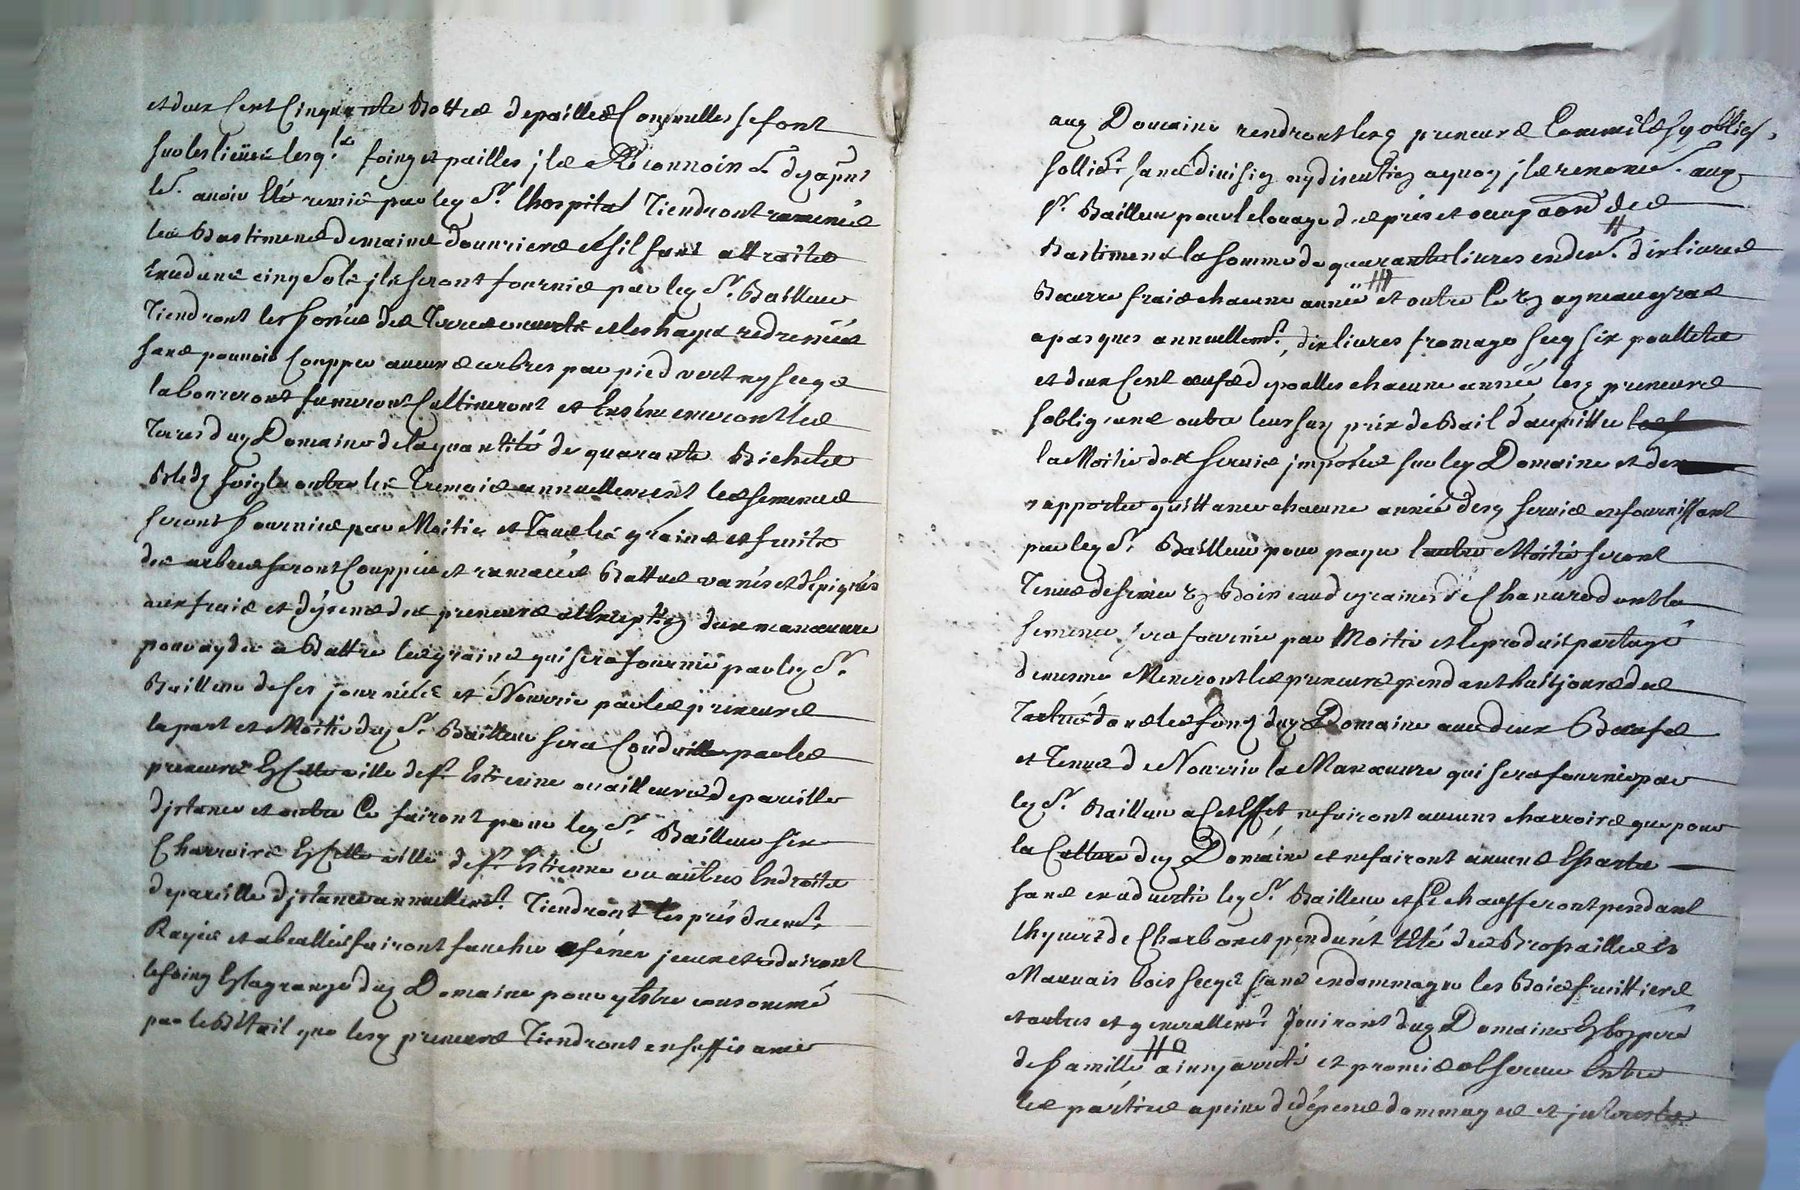 et deux Cent Cinquante Bottes de pailles Commelles se sont
sur les lieux lesqls foings et pailles ils Reconnoiss.t
avoir été remis par led Sr. lhospital Tiendront ramenés
les Bastiments de mains douvriers et sil sont attraits
Eudune cinq Sols ils seront fournis par led Sr. Bailleur
Tiendront les fossés des Terres ouverts et les hayes redressées
sans pouvoir Coupper aucuns arbres par pied vert ny secqs
laboureront fumeront Cultiveront et Ensemenceront les
Terres dud Domaine de la quantité de quarante Bichets
Bled soigle outre les Tremois annuellement les semences
seront fournies par Moitié et Tous les grains et fruits
des arbres seront Couppés et ramassés Battus vanés et
aux frais et dépens des preneurs a lexception dun manoeuvre
pour ayder a Battre les grains qui sera fournie par led Sr.
Bailleur de ses journées et Nourrie par les preneurs
la part et Moitié dud Sr. Bailleur sera Conduitte par les
preneurs En cette ville de St Estienne ou ailleurs de pareille
distance et outre Ce fairont pour led Sr. Bailleur six
Charrois En cette ville de St Estienne ou autres Endroits
de pareille distance annuellemt. Tiendront les prés duemt.
Rayés et abeallés fairont faucher fener jceux et reduiront
le foing En la grange dud Domaine pour y Estre consommé
par le Bétail que lesd preneurs Tiendront en suffisance
aud Domaine rendront lesd preneurs Comme ils sy obligt.
sollidt. sans division ny discution a quoy ils renoncet. aud
Sr. Bailleur pour le louage des prés et occupaons des
Bastiments la somme de quarante livres en den. dix livres
Beurre frais chacune année et outre Ce Un agneau gras
a pasques annuellemt. dix livres fromage secq six poullets
et deux Cent oeufs de poulles chacune année lesd preneurs
sobligeans outre leur sus prix de Bail daquitter
la Moitié des servis jmposés sur led Domaine et den
rapporter quittance chacune année desd servis en fournissant
par led Sr. Bailleur pour payer lautre Moitié seront
Tenus de semer Un Boisseau de graines de Chanvre dont la
semence sera fournie par Moitié et le produit partagé
de mesme Meneront les preneurs pendant huit jours des
dans les fonds dud Domaine avec deux Boeufs
et Tenus de Nourrir la Manoeuvre qui sera fournie par
led Sr. Bailleur a Cet Effet ne fairont aucuns charrois que pour
la Culture dud Domaine et ne fairont aucuns Essarts
sans en advertir led Sr. Bailleur et se chaufferont pendant
lhyvert de Charbon et pendant lEté des Bropailles Et
Mauvais bois secqs sans endommager les Bois fruittiers
et autres et generallemt. jouiront dud Domaine En bon pere
de famille ainsy arreté et promis observer Entre
les parties a peine de dépens dommages et jnterests